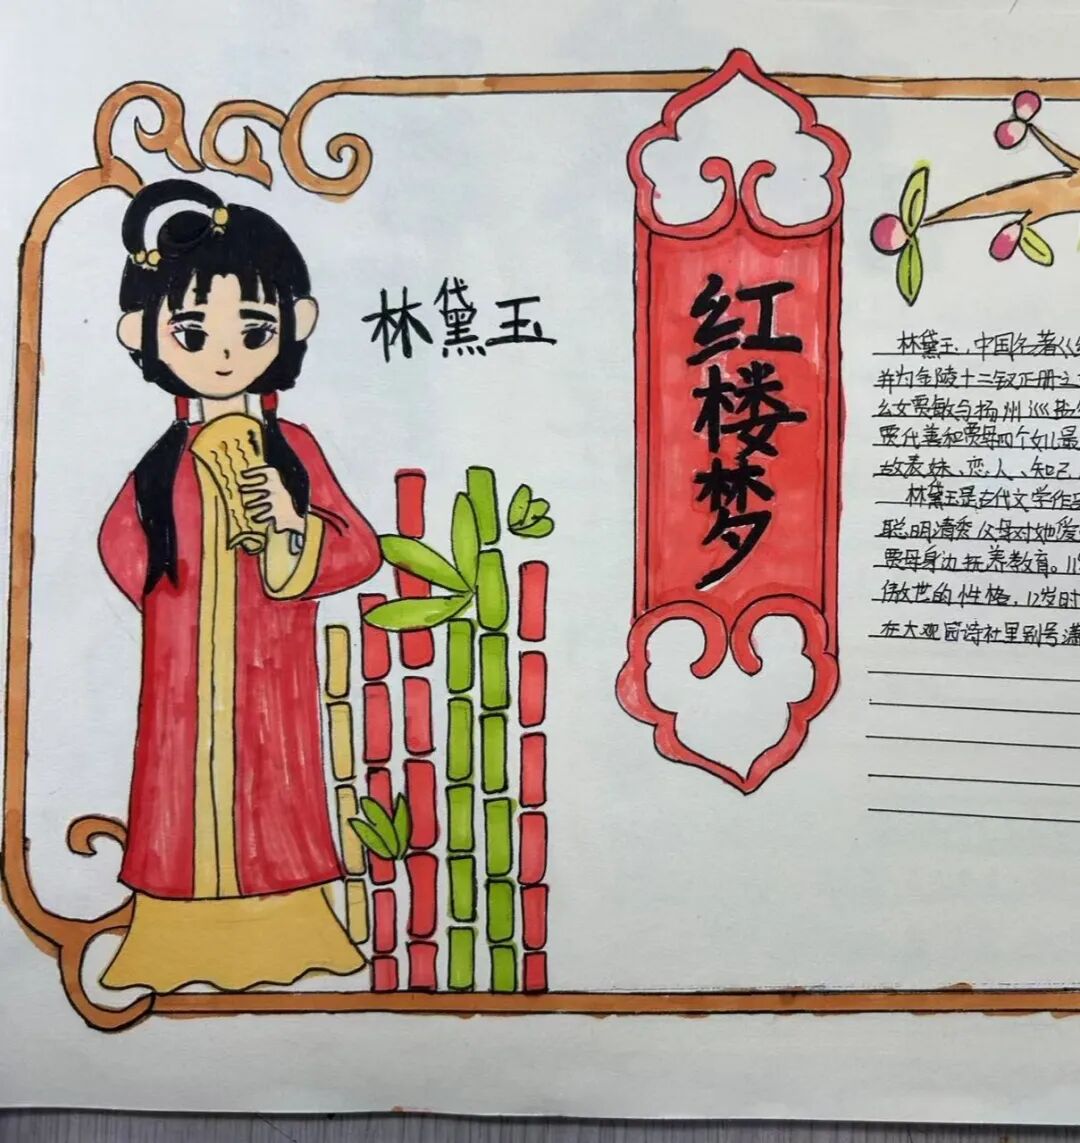 林黛玉
红楼梦
林黛玉,中国名著《
并为金陵十二钗正册之
幺女贾敏与扬州巡盐
贾代善和贾母四个女儿最
故表妹、恋人、知己
林黛玉是古代文学作
聪明清秀父母对她爱
贾母身边抚养教育。11
傲世的性格,12岁时
在大观园诗社里别号潇